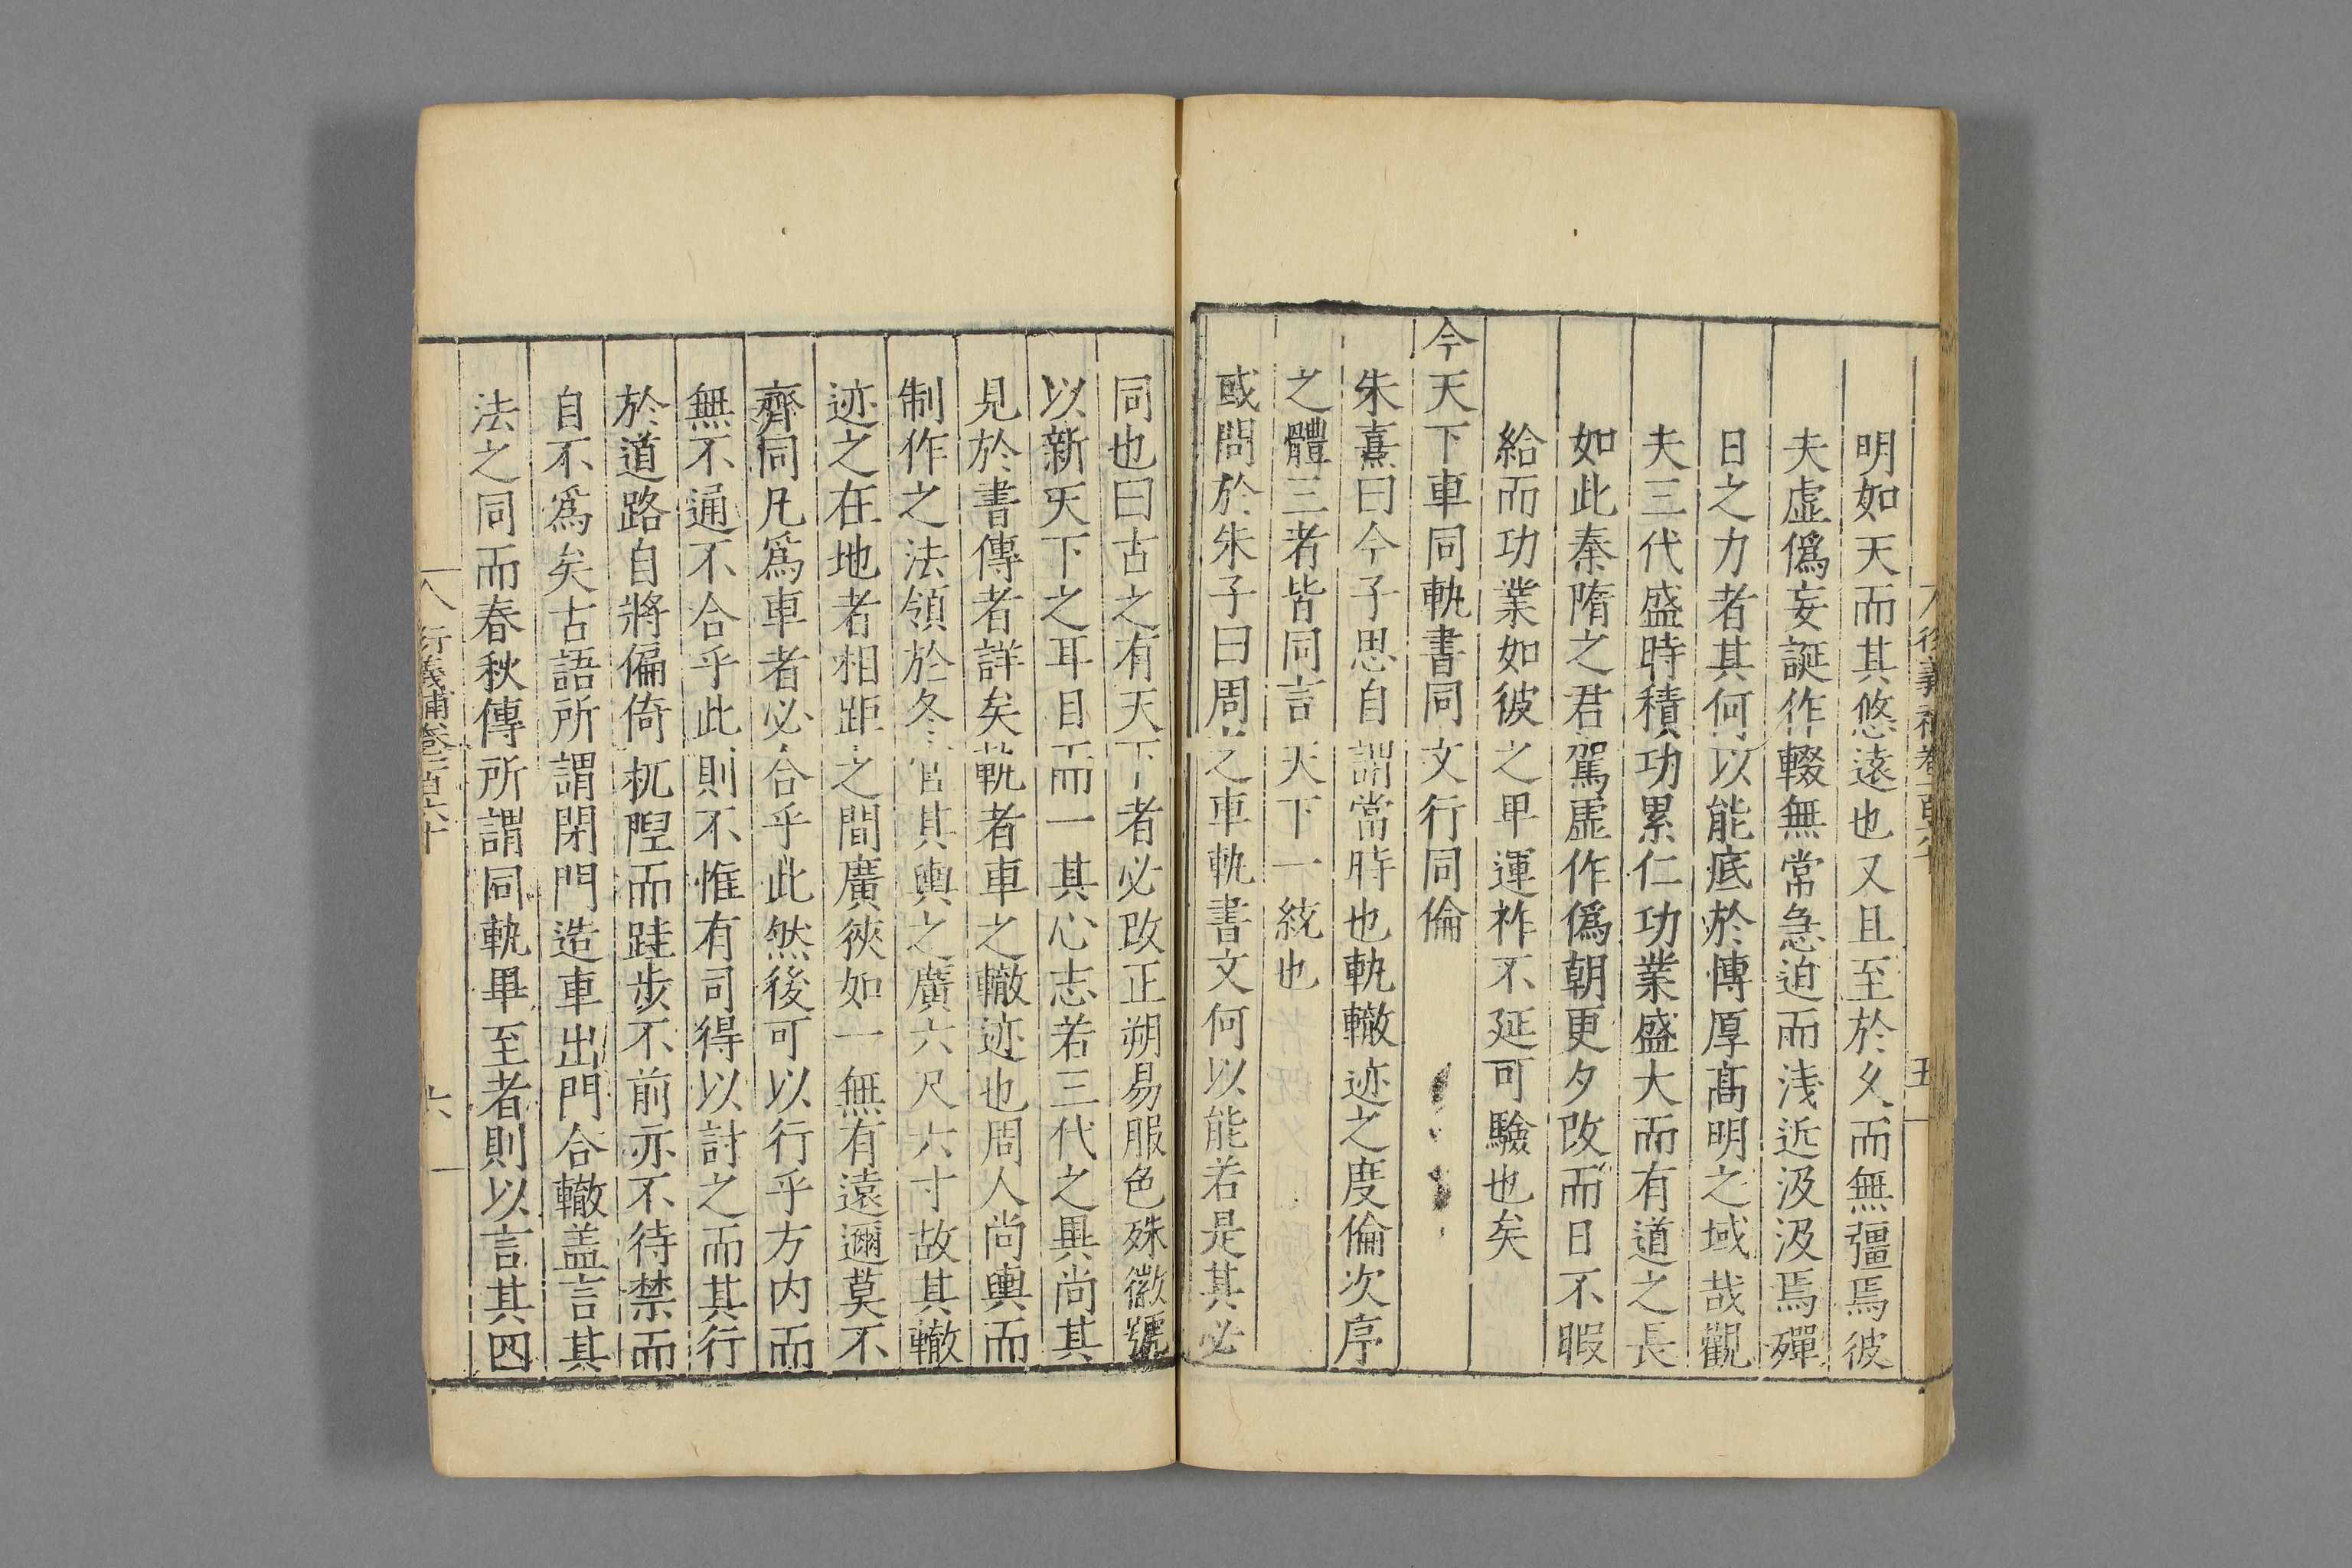 明如天而其悠遠也又且至於久而無彊焉彼
夫虛僞妄誕作輟無常急迫而浅近汲汲焉殫
日之力者其何以能底於傳厚髙明之域哉觀
夫三代盛時積功累仁功業盛大而有道之長
如此秦隋之君駕虛作僞朝更夕改而日不暇
給而功業如彼之甲運祚不延可驗也矣
今天下車同軌書同文行同倫
朱熹曰今子思自謂當時也軌轍迹之度倫次序
之體三者皆同言天下一統也
或問於朱子曰周之車軌書文何以能若是其必
同也曰古之有天下者必改正朔易服色殊徽號
以新天下之耳目而一其心志若三代之異尚其
見於書傳者詳矣軌者車之轍迹也周人尚輿而
制作之法領於冬官其輿之廣六尺六寸故其轍
迹之在地者相距之間廣狹如一無有遠邇莫不
齊同凡爲車者必合乎此然後可以行乎方内而
無不通不合乎此則不惟有司得以討之而其行
於道路自將偏倚杌隉而跬步不前亦不待禁而
自不爲矣古語所謂閉門造車出門合轍盖言其
法之同而春秋傳所謂同軌畢至者則以言其四
衍義補卷一百六十
六